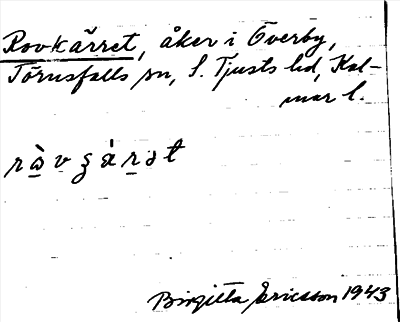 Rovkärret, åker i Överby,
Törnsfalls sn, S. Tjusts hd, Kal-
mar l.
Birgitta Ericsson 1943